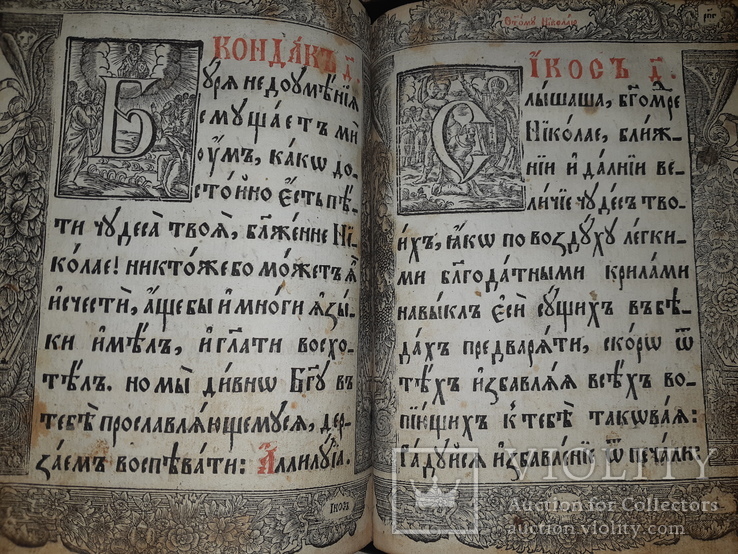 КОНДАКЪ Г҃.
Бꙋ́рѧ недоꙋмѣ́нїѧ
смꙋща́етъ мѝ
оу҆́мъ, ка́кѡ до-
сто́йно є҆́сть пѣ́-
ти чꙋдеса̀ твоѧ̑, бл҃же́нне Ні-
ко́лае! никто́же бо мо́жетъ ѧ҆̀
и҆счестѝ, а҆́ще бы и҆ мно́ги ѧ҆зы́-
ки и҆мѣ́лъ, и҆ гл҃а́ти восхо-
тѣ́лъ. но мы̀ ди́внѡ Бг҃ꙋ въ
тебѣ̀ прославлѧ́ющемꙋсѧ, дер-
за́емъ воспѣва́ти: А҆ллилꙋ́їа.
І҆́косъ
Ст҃о́мꙋ Ніко́лаю
І҆́КОСЪ Г҃.
Слы́шаша, бг҃омꙋ́дре
Ніко́лае, бли́ж-
нїи и҆ да́лнїи ве-
ли́чїе чꙋде́съ тво-
и́хъ, ꙗ҆́кѡ по во́здꙋхꙋ ле́гки-
ми бл҃года́тными крила́ми
навы́клъ є҆сѝ сꙋ́щихъ въ бѣ-
да́хъ предварѧ́ти, ско́рѡ ѿ
тѣ́хъ и҆збавлѧ́ѧ всѣ́хъ во-
пїю́щихъ къ тебѣ̀ такѡва́ѧ:
Ра́дꙋйсѧ и҆збавле́нїе ѿ печа́ли:
VIOLITY
Auction for Collectors
auction.violity.com